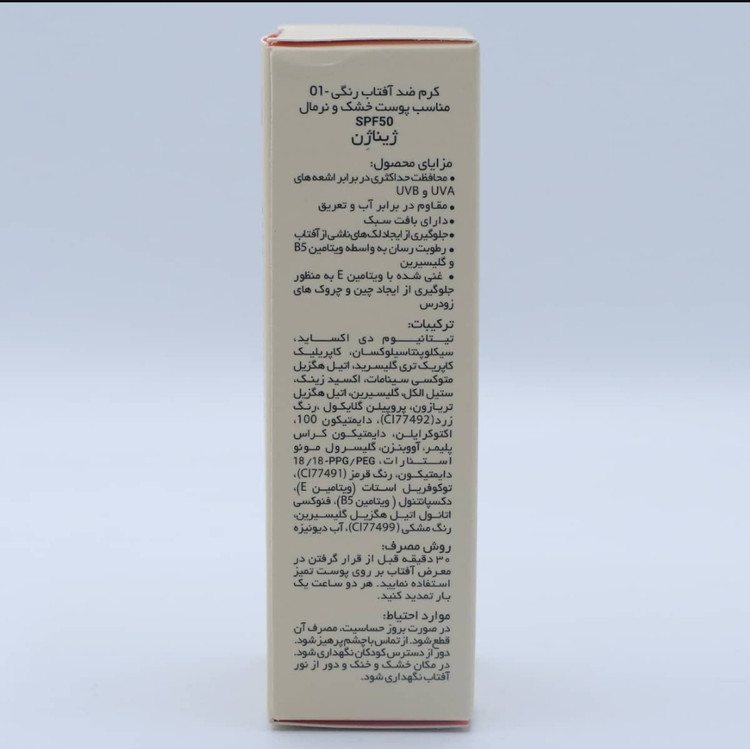 کرم ضد آفتاب رنگی -01
مناسب پوست خشک و نرمال
SPF50
ژیناژن
مزایای محصول:
• محافظت حداکثری در برابر اشعه های
UVA و UVB
• مقاوم در برابر آب و تعریق
• دارای بافت سبک
• جلوگیری از ایجاد لک های ناشی از آفتاب
• رطوبت رسان به واسطه ویتامین B5
و گلیسیرین
• غنی شده با ویتامین E به منظور
جلوگیری از ایجاد چین و چروک های
زودرس
ترکیبات:
تیتانیوم دی اکساید،
سیکلوپنتاسیلوکسان، کاپریلیک
کاپریک تری گلیسرید، اتیل هگزیل
متوکسی سینامات، اکسید زینک،
ستیل الکل، گلیسیرین، اتیل هگزیل
تریازون، پروپیلن گلایکول ،رنگ
زرد(CI77492)، دایمتیکون 100،
اکتوکرایلن، دایمتیکون کراس
پلیمر، آووبنزن، گلیسرول مونو
استئارات، 18/18-PPG/PEG
دایمتیکون، رنگ قرمز (CI77491)،
توکوفریل استات (ویتامین E)،
دکسپانتنول ( ویتامین B5)، فنوکسی
اتانول اتیل هگزیل گلیسیرین،
رنگ مشکی (CI77499)، آب دیونیزه
روش مصرف:
۳۰ دقیقه قبل از قرار گرفتن در
معرض آفتاب بر روی پوست تمیز
استفاده نمایید. هر دو ساعت یک
بار تمدید کنید.
موارد احتیاط:
در صورت بروز حساسیت، مصرف آن
قطع شود. از تماس با چشم پرهیز شود.
دور از دسترس کودکان نگهداری شود.
در مکان خشک و خنک و دور از نور
آفتاب نگهداری شود.